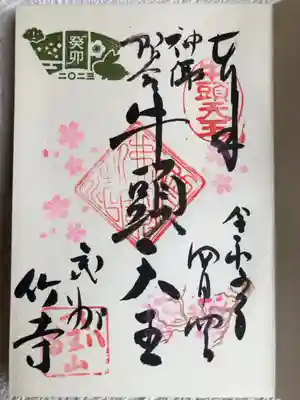 奉拝
牛頭天王
令和五年
神仏
習合
牛頭天王
武州
竹寺
癸卯
二〇二三